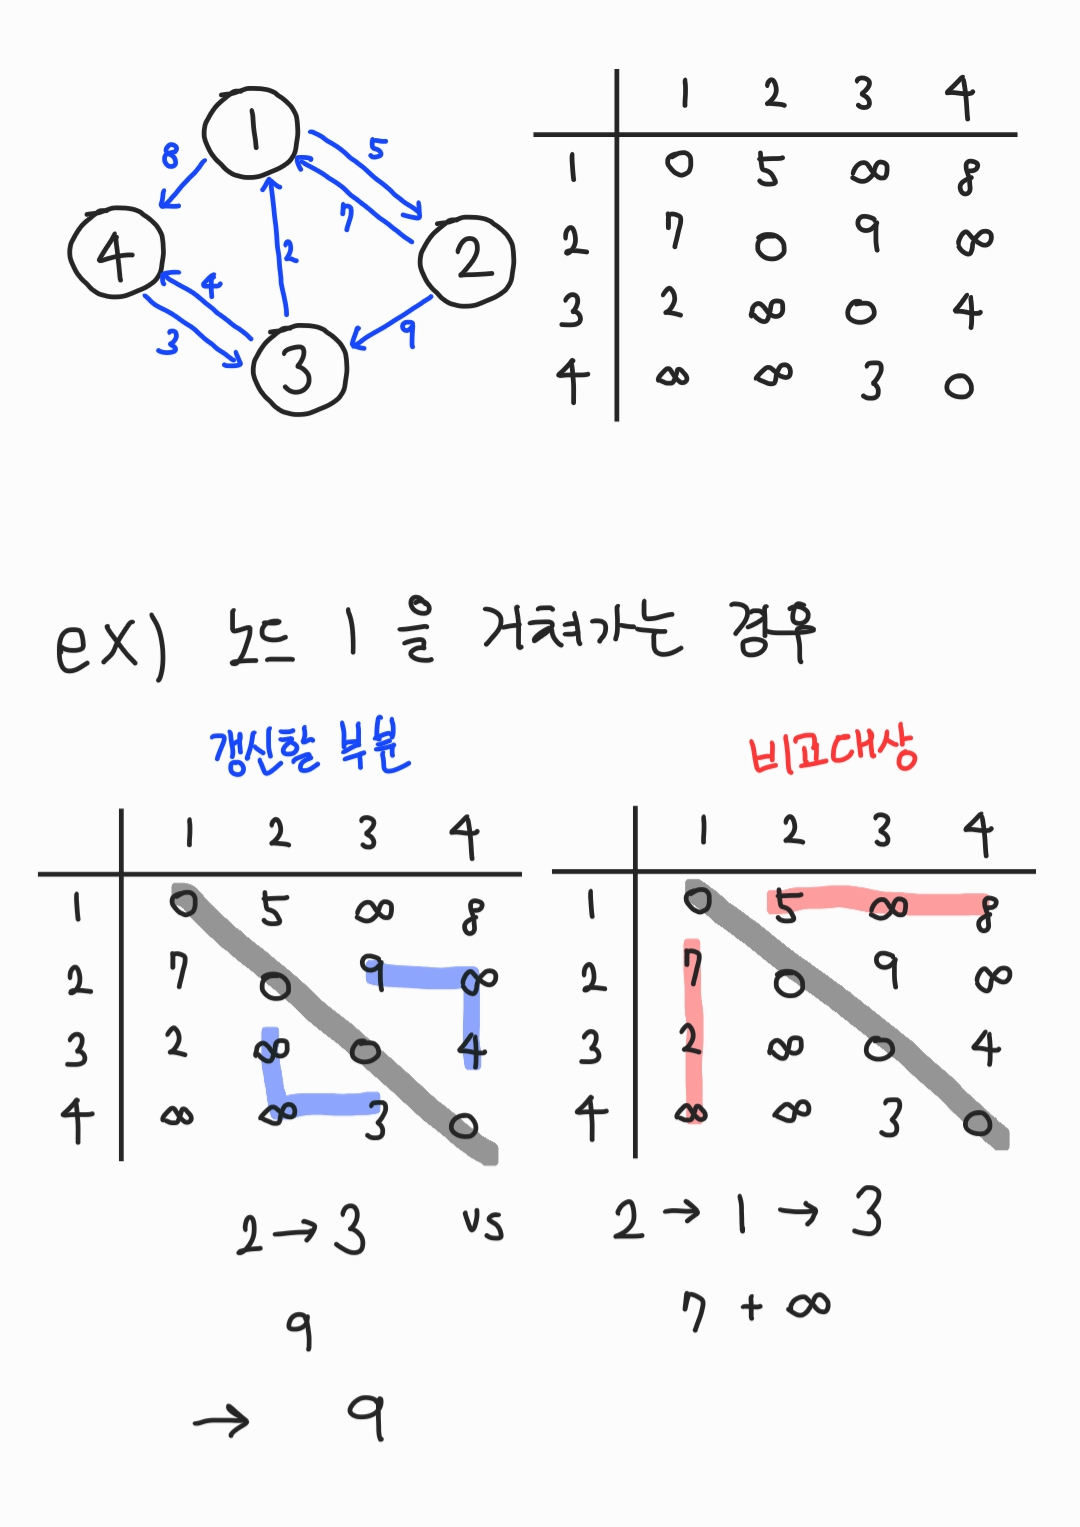 1
8
5
7
4
2
2
4
3
9
3
1 2 3 4
1 0 5 ∞ 8
2 7 0 9 ∞
3 2 ∞ 0 4
4 ∞ ∞ 3 0
ex) 노드 1을 거쳐가는 경우
갱신할 부분
1 2 3 4
1 0 5 ∞ 8
2 7 0 9 ∞
3 2 ∞ 0 4
4 ∞ ∞ 3 0
비교대상
1 2 3 4
1 0 5 ∞ 8
2 7 0 9 ∞
3 2 ∞ 0 4
4 ∞ ∞ 3 0
2 → 3 vs 2 → 1 → 3
9 7 + ∞
→ 9